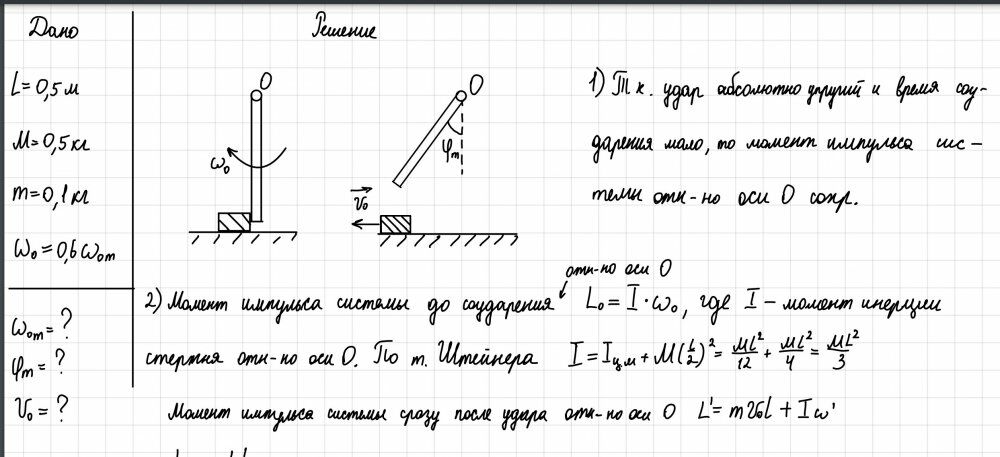 Дано
Решение
L=0,5м
M=0,5кг
m=0,1кг
ω₀=0,6ω₀ₘ
ω₀ₘ=?
φₘ=?
V₀=?
O
ω₀
O
φₘ
V₀
1) Т.к. удар абсолютно упругий и время соу-
дарения мало, то момент импульса сис-
темы отн-но оси O сохр.
отн-но оси O
2) Момент импульса системы до соударения L₀=I·ω₀, где I – момент инерции
стержня отн-но оси O. По т. Штейнера I=Iц.м+M(L/2)²=ML²/12+ML²/4=ML²/3
Момент импульса системы сразу после удара отн-но оси O L'=mV₀l+Iω'